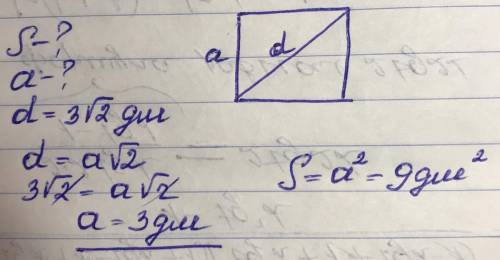 S-?
a-?
d = 3√2 дм
d = a√2
3√2 = a√2
a = 3 дм
a
d
S = a² = 9 дм²